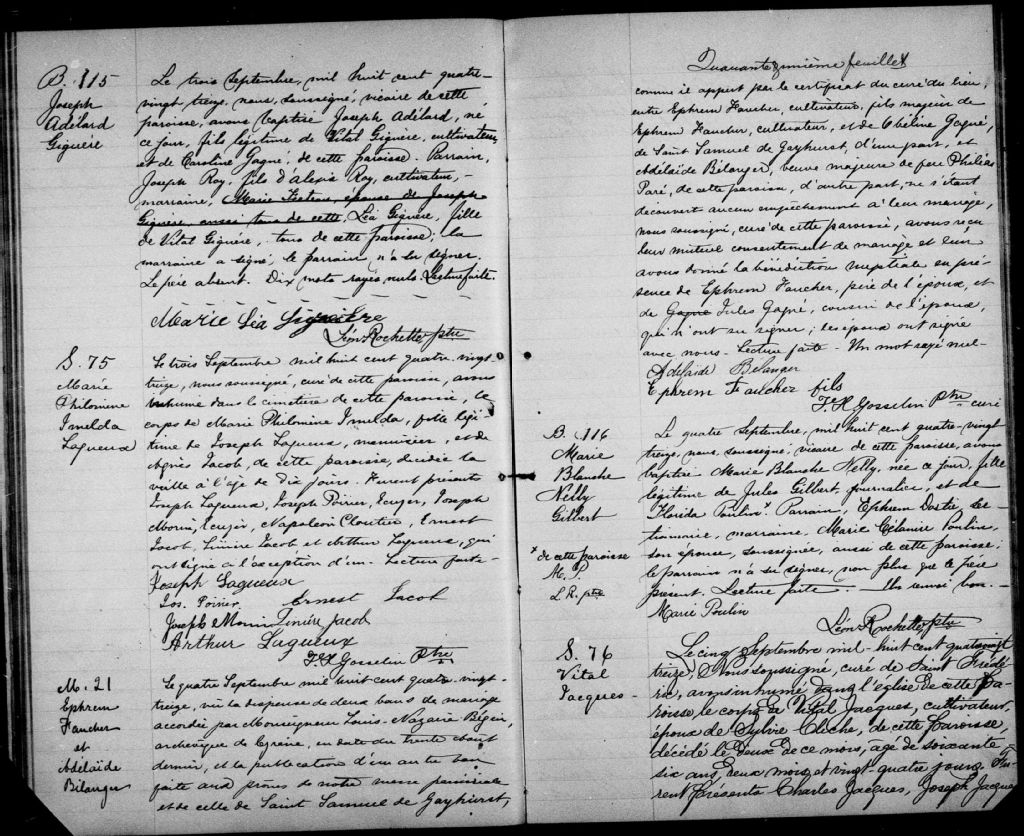 B. 115
Joseph
Adélard
Giguère
Le trois Septembre, mil huit cent quatre-
vingt treize, nous, soussigné, vicaire de cette
paroisse, avons baptisé Joseph Adélard, né
ce jour, fils légitime de Vital Giguère, cultivateur,
et de Caroline Gagné, de cette paroisse. Parrain,
Joseph Roy, fils d'alexis Roy, cultivateur, -
marraine, Marie Fecteau, épouse de Joseph
Giguère, aussi tous de cette, Léa Giguère, fille
de Vital Giguère, tous de cette paroisse; la
marraine a signé, le parrain n'a su signer.
Le père absent. Dix mots rayés nuls. Lecture faite.
Marie Léa Giguère
Léon Rochette ptre
S. 75
Marie
Philomène
Imelda
Lagueux
Le trois Septembre mil huit cent quatre-vingt
treize, nous soussigné, curé de cette paroisse, avons
inhumé dans le cimetière de cette paroisse, le
corps de Marie Philomène Imelda, fille légi-
time de Joseph Lagueux, menuisier, et de
Agnès Jacob, de cette paroisse, décédée la
veille à l'âge de dix jours. Furent présents
Joseph Lagueux, Joseph Poirier, Joseph
Morin, Napoléon Cloutier, Ernest
Jacob, Linière Jacob et Arthur Lagueux, qui
ont signé à l'exception d'un. Lecture faite-
Joseph Lagueux
Jos. Poirier Ernest Jacob
Joseph Morin Linière Jacob
Arthur Lagueux
F. X. Gosselin Ptre
M. 21
Ephrem
Faucher
et
Adélaïde
Bélanger
Le quatre Septembre mil huit cent quatre-vingt-
treize, vu la dispense de deux bans de mariage
accordée par Monseigneur Louis-Nazaire Bégin,
archevêque de Cyrène, en date du trente Août
dernier, et la publication d'un autre ban
faite aux prônes de notre messe paroissiale
et de celle de Saint Samuel de Gayhurst,
Quarante-unième feuillet
comme il appert par le certificat du curé du lieu,
entre Ephrem Faucher, cultivateur, fils majeur de
Ephrem Faucher, cultivateur, et de Obéline Gagné,
de Saint Samuel de Gayhurst, d'une part, et
Adélaïde Bélanger, veuve majeure de feu Philéas
Paré, de cette paroisse, d'autre part, ne s'étant
découvert aucun empêchement à leur mariage,
nous soussigné, curé de cette paroisse, avons reçu
leur mutuel consentement de mariage et leur
avons donné la bénédiction nuptiale en pré-
sence de Ephrem Faucher, père de l'époux, et
de Gagné Jules Gagné, cousin de l'époux,
qui n'ont su signer; les époux ont signé
avec nous - Lecture faite - Un mot rayé nul-
Adelaide Bélanger
Ephrem Faucher fils
F. X. Gosselin Ptre curé
B. 116
Marie
Blanche
Nelly
Gilbert
x de cette paroisse
M. P.
L. R. ptre
Le quatre Septembre, mil huit cent quatre-vingt
treize, nous, soussigné, vicaire de cette paroisse, avons
baptisé Marie Blanche Nelly, née ce jour, fille
légitime de Jules Gilbert, journalier, et de
Florida Poulin x. Parrain, Ephrem Dostie,
marraine, Marie Célanire Poulin,
son épouse, soussignée, aussi de cette paroisse;
le parrain n'a su signer, non plus que le père
présent. Lecture faite. - Un renvoi bon. -
Marie Poulin
Léon Rochette, ptre
S. 76
Vital
Jacques-
Le cinq Septembre mil-huit cent quatrevingt
treize, Nous soussigné, curé de Saint Frédé-
ric, avons inhumé dans l'église de cette pa-
roisse, le corps de Vital Jacques, cultivateur,
époux de Sylvie Cliche, de cette paroisse,
décédé le deux de ce mois, agé de soixante
six ans, deux mois et vingt-quatre jours. Fu-
rent présents Charles Jacques, Joseph Jacques